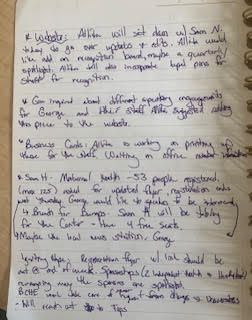 * Website: Allita will sit down w/ Sean N.
today to go over updates & edits. Allita would
like add on recognition board, maybe a quarterly
spotlight. Allita will also incorporate lapel pins for
staff for recognition.
* Gen inquired about different speaking engagements
for George and other staff. Allita suggested adding
this piece to the website.
* Business Cards: Allita is working on printing
these for the staff. Waiting on office number
* Sean H - Maternal Health - 53 people registered,
(max 125) asked for updated flyer, registration ends
next Thursday. George would like to speaker to be
Brunch for Bumps. Sean H will be tabling
for the Center - Have 4 free seats.
* Maybe the local news station, Gary
Registration flyer w/ link should be
out @ end of week. Sponsorships (2
the speakers are
BCHC will take care of
- Will reach out to Tops